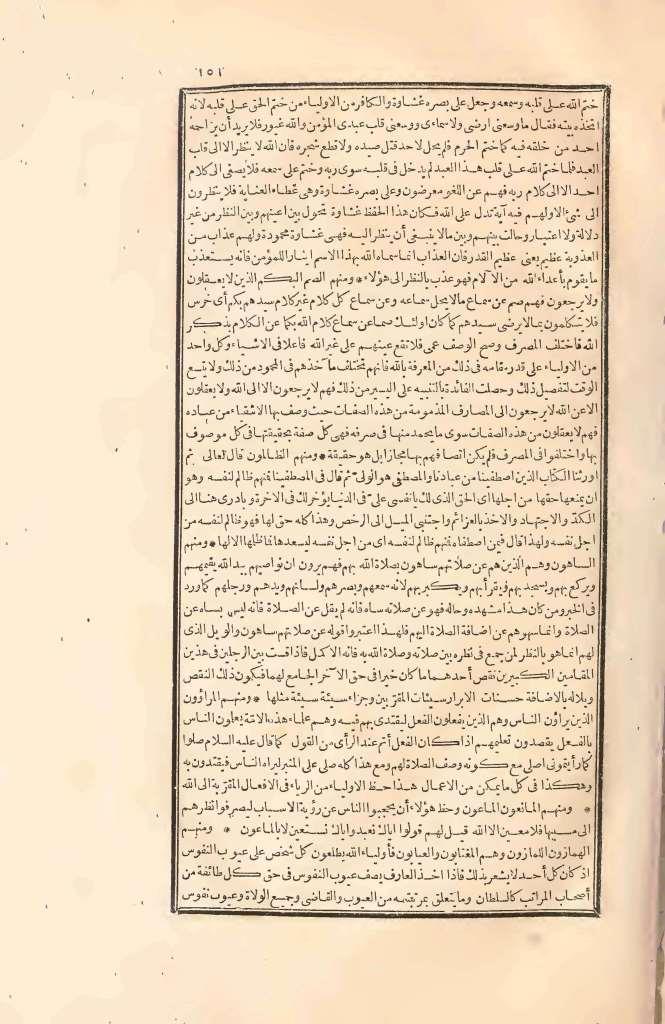 ١٥١
ختم الله على قلبه وسمعه وجعل على بصره غشاوة والكافر من الاولياء من ختم الحق على قلبه لانه
اتخذه بيته فقال ما وسعنى أرضى ولا سماءى ووسعنى قلب عبدى المؤمن والله غيور فلا يريد أن يزاحمه
أحد من خلقه فيه كما ختم الحرم فلم يحل لاحد قتل صيده ولا قطع شجره فان الله لا ينظر الا الى قلب
العبد فلما ختم الله على قلب هذا العبد لم يدخل فى قلبه سوى ربه وختم على سمعه فلا يصغى الى كلام
أحد الا الى كلام ربه فهم عن اللغو معرضون وعلى بصره غشاوة وهى غطاء العناية فلا ينظرون
الى شئ الا ولهم فيه آية تدل على الله فكان هذا الحفظ غشاوة تحول بين أعينهم وبين النظر من غير
دلالة ولا اعتبار وحالت بينهم وبين ما لا ينبغى أن ينظر اليه فهى غشاوة محمودة ولهم عذاب من
العذوبة عظيم يعنى عظيم القدر فان العذاب انما سماه الله بهذا الاسم ايثارا للمؤمن فانه يستعذب
ما يقوم بأعداء الله من الآلام فهو عذب بالنظر الى هؤلاء * ومنهم الصم البكم الذين لا يعقلون
ولا يرجعون فهم صم عن سماع ما لا يحل سماعه وعن سماع كل كلام غير كلام سيدهم بكم أى خرس
فلا يتكلمون بما لا يرضى سيدهم كما كان اولئك صما عن سماع كلام الله بكما عن الكلام بذكر
الله فاختلف المصرف وصح الوصف عمى فلا تقع عينهم على غير الله فاعلا فى الاشياء وكل واحد
من الاولياء على قدر مقامه فى ذلك من المعرفة بالله فانهم تختلف مآخذهم فى المحمود من ذلك ولا يتسع
الوقت لتفصيل ذلك وحصلت الفائدة بالتنبيه على اليسير من ذلك فهم لا يرجعون الا الى الله ولا يعقلون
الا عن الله لا يرجعون الى المصارف المذمومة من هذه الصفات حيث وصف بها الاشقياء من عباده
فهم لا يعقلون من هذه الصفات سوى ما يحمد منها فى صرفه فهى كل صفة بحقيقتها فى كل موصوف
بها واختلفوا فى المصرف فلم يكن اتصافهم بها مجازا بل هو حقيقة * ومنهم الظالمون قال تعالى ثم
أورثنا الكتاب الذين اصطفينا من عبادنا والمصطفى هو الولى ثم قال فى المصطفين فمنهم ظالم لنفسه وهو
ان يمنعها حقها من اجلها اى الحق الذى لك يا نفسى على فى الدنيا يؤخر لك فى الآخرة وبادرى هنا الى
الكد والاجتهاد والاخذ بالعزائم واجتنبى الميل الى الرخص وهذا كله حق لها فهو ظالم لنفسه من
اجل نفسه ولهذا قال فيمن اصطفاه فمنهم ظالم لنفسه أى من اجل نفسه ليسعدها فما ظلمها الا لها * ومنهم
الساهون وهم الذين هم عن صلاتهم ساهون بصلاة الله بهم فهم يرون ان نواصيهم بيد الله يقيمهم
ويركع بهم ويسجد بهم ويقرأ بهم ويكبر بهم لانه سمعهم وبصرهم ولسانهم ويدهم ورجلهم كما ورد
فى الخبر ومن كان هذا مشهده وحاله فهو عن صلاته ساه فانه لم يقل عن الصلاة فانه ليس بساه عن
الصلاة وانما سهوهم عن اضافة الصلاة اليهم فلهذا اعتبروا قوله عن صلاتهم ساهون والويل الذى
لهم انما هو بالنظر لمن جمع فى نظره بين صلاته وصلاة الله به فانه الاكمل فاذا قست بين الرجلين فى هذين
المقامين الكبيرين نقص أحدهما ما كان خيرا فى حق الآخر الجامع لهما فيكون ذلك النقص
ويلا له بالاضافة حسنات الابرار سيئات المقربين وجزاء سيئة سيئة مثلها * ومنهم المراؤون
الذين يراؤن الناس وهم الذين يفعلون الفعل ليقتدى بهم فيه وهم علماء هذه الامة يعلمون الناس
بالفعل يقصدون تعليمهم اذا كان الفعل أتم عند الرأى من القول كما قال عليه السلام صلوا
كما رأيتمونى اصلى مع كونه وصف الصلاة لهم ومع هذا كله صلى على المنبر ليراه الناس فيقتدون به
وهكذا فى كل ما يمكن من الاعمال هذا حظ الاولياء من الرياء فى الافعال المقربة الى الله
* ومنهم المانعون الماعون وحظ هؤلاء أن يحجبوا الناس عن رؤية الاسباب ليصرفوا نظرهم
الى مسببها فلا معين الا الله قيل لهم قولوا اياك نعبد واياك نستعين لا بالماعون * ومنهم
الهمازون اللمازون وهم المغتابون والعيابون فأولياء الله يطلعون كل شخص على عيوب النفوس
اذ كان كل أحد لا يشعر بذلك فاذا اخذ العارف يصف عيوب النفوس فى حق كل طائفة من
أصحاب المراتب كالسلطان وما يتعلق بمرتبته من العيوب والقاضى وجميع الولاة وعيوب نفوس